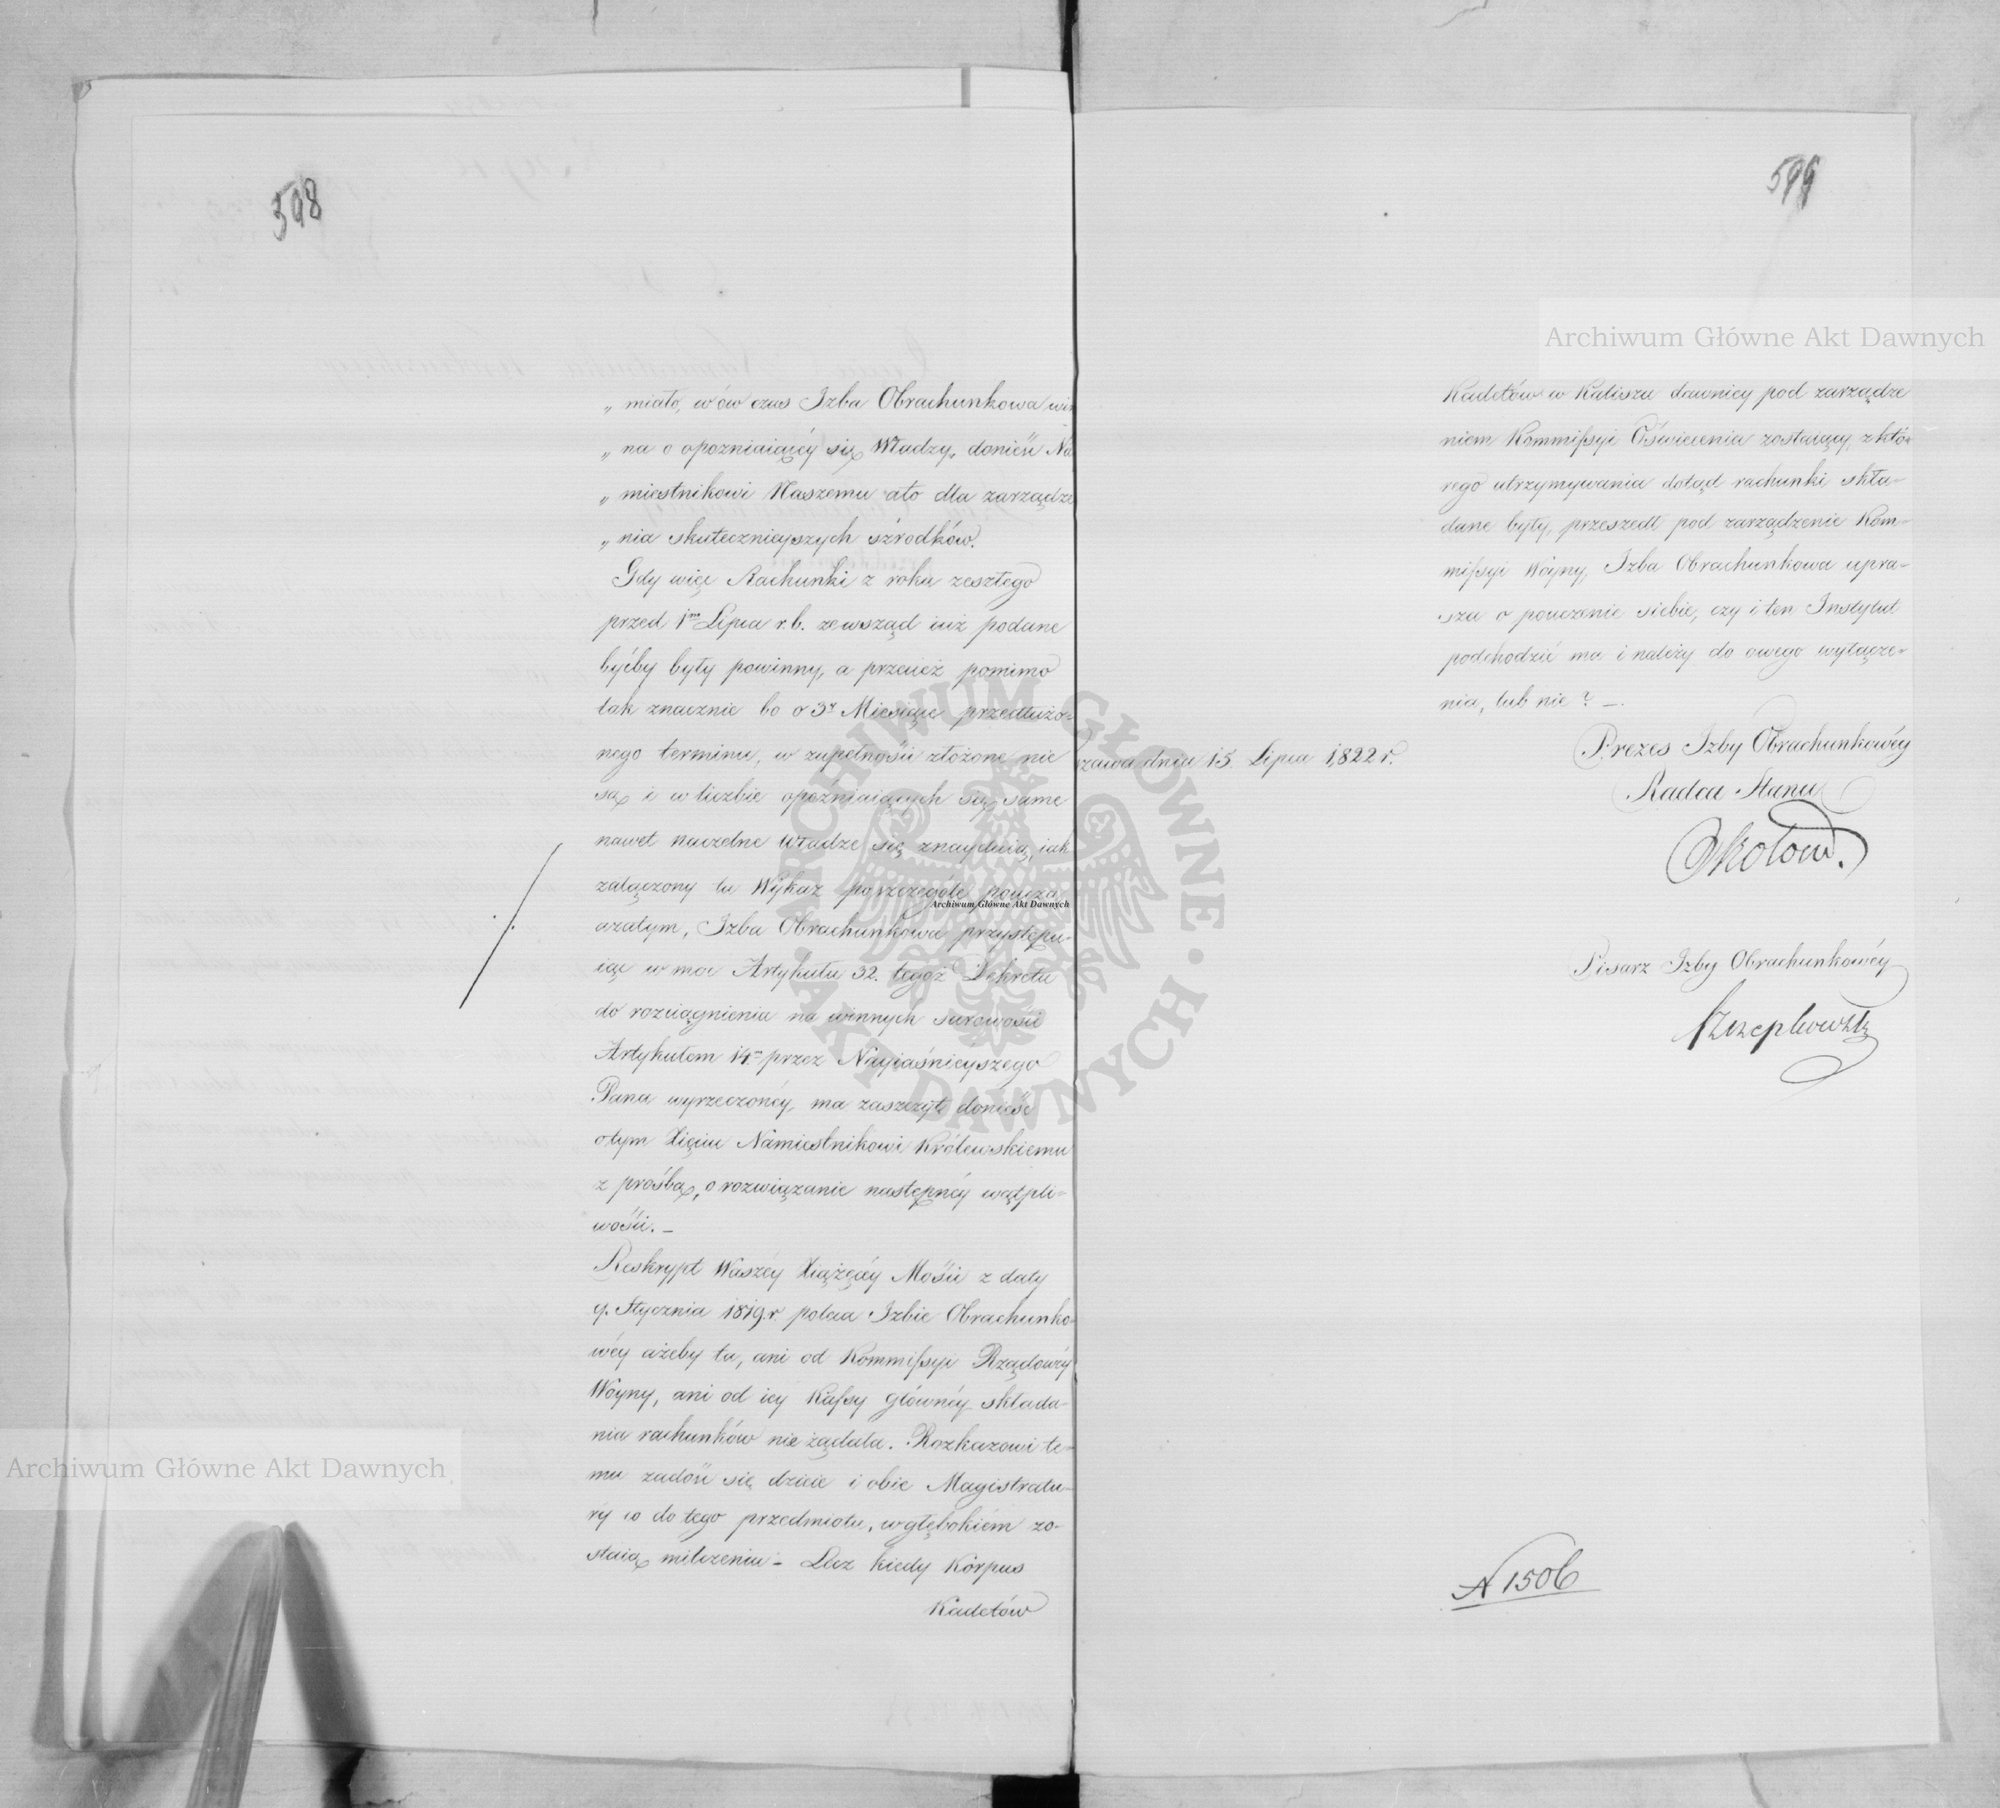 598
„ miało, w ów czas Izba Obrachunkowa win
„ na o opozniaiącéy się Władzy, donieść Na
„ miestnikowi Naszemu ato dla zarządze
„ nia skutecznieyszych szrodków.
Gdy więc Rachunki z roku zeszłego
przed 1mo Lipca r. b. zewsząd iuż podane
byćby były powinny, a przecież pomimo
tak znacznie bo o 3y Miesiące przedłużo-
nego terminu, w zupełności złożone nie
są i w liczbie opóźniaiących się, same
nawet naczelne Władze się znayduią, iak
załączony tu Wykaz poszczególe poucza
azatym, Izba Obrachunkowa przystępu-
iąc w moc Artykułu 32. tegoż Dekretu
do rozciągnienia na winnych surowości
Artykułem 14. przez Nayiaśnieyszego
Pana wyrzeczonéy, ma zaszczyt donieść
otym Xięciu Namiestnikowi Królewskiemu
z prośbą, o rozwiązanie następnéy wątpli-
wości. —
Reskrypt Waszéy Xiążęcéy Mości z daty
9. Stycznia 1819. r. poleca Izbie Obrachunko-
wéy ażeby ta, ani od Kommissyi Rządowéy
Woyny, ani od iéy Kassy główney składa-
nia rachunków nie żądała. Rozkazowi te-
mu zadość się dzieie i obie Magistratu-
ry co do tego przedmiotu, w głębokiem zo-
staią milczeniu — Lecz kiedy Korpus
Kadetów
599
Kadetów w Kaliszu dawniey pod zarządze
niem Kommissyi Oświecenia zostaiący, z któ-
rego utrzymywania dotąd rachunki skła-
dane były, przeszedł pod zarządzenie Kom-
missyi Woyny, Izba Obrachunkowa upra-
sza o pouczenie siebie, czy i ten Instytut
podchodzić ma i należy do owego wyłącze-
nia, lub nie? —.
szawa dnia 15 Lipca 1822 r.
Prezes Izby Obrachunkowéy
Radca Stanu
Pisarz Izby Obrachunkowéy
N 1506
Archiwum Główne Akt Dawnych
Archiwum Główne Akt Dawnych
Archiwum Główne Akt Dawnych
ARCHIWUM GŁÓWNE · AKT DAWNYCH ·